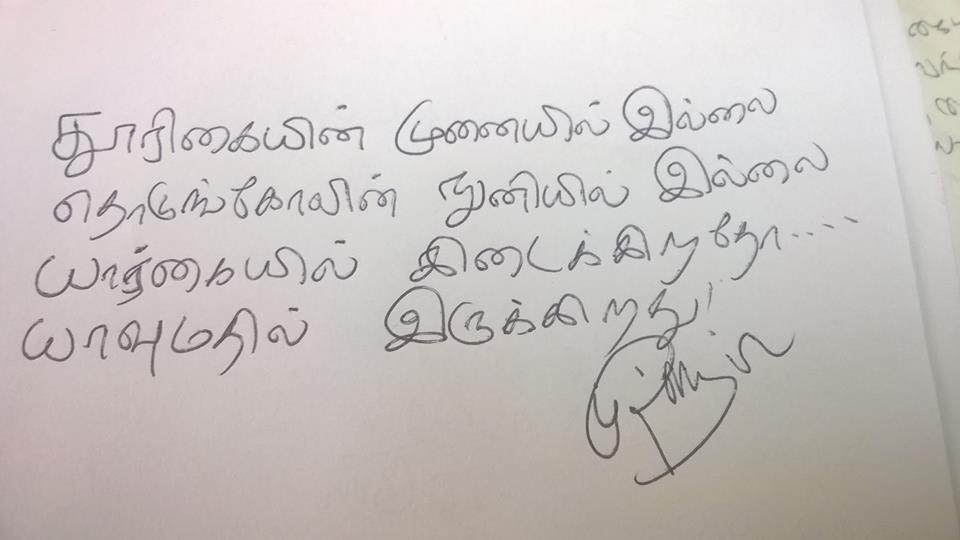 தூரிகையின் முனையில் இல்லை
தொடுங்கோலின் நுனியில் இல்லை
யார்கையில் கிடைக்கிறதோ....
யாவுமதில் இருக்கிறது!